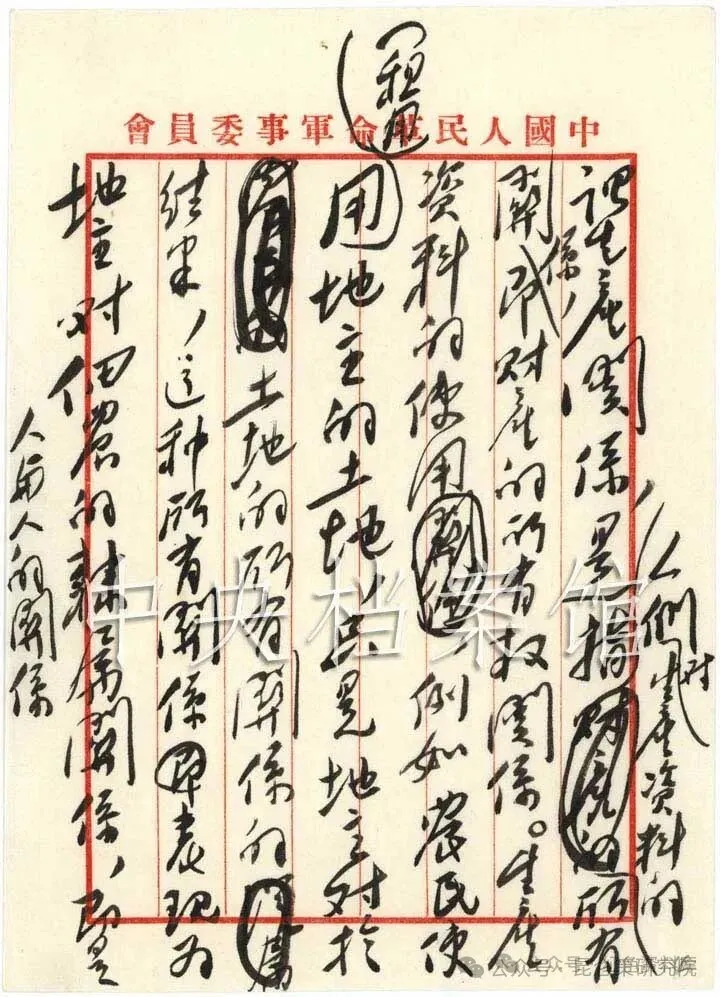 中國人民革命軍事委員會
(租用)
謂生產關係,是指人們對生產資料的所有
關係,即財產的所有权關係。生產
資料的使用,例如農民使
用(租用)地主的土地,只是地主对於
土地的所有關係的
结果,這种所有關係即表现为
地主对佃農的隸属關係,即是
人與人的關係
中央档案馆
公众号·昆仑策研究院